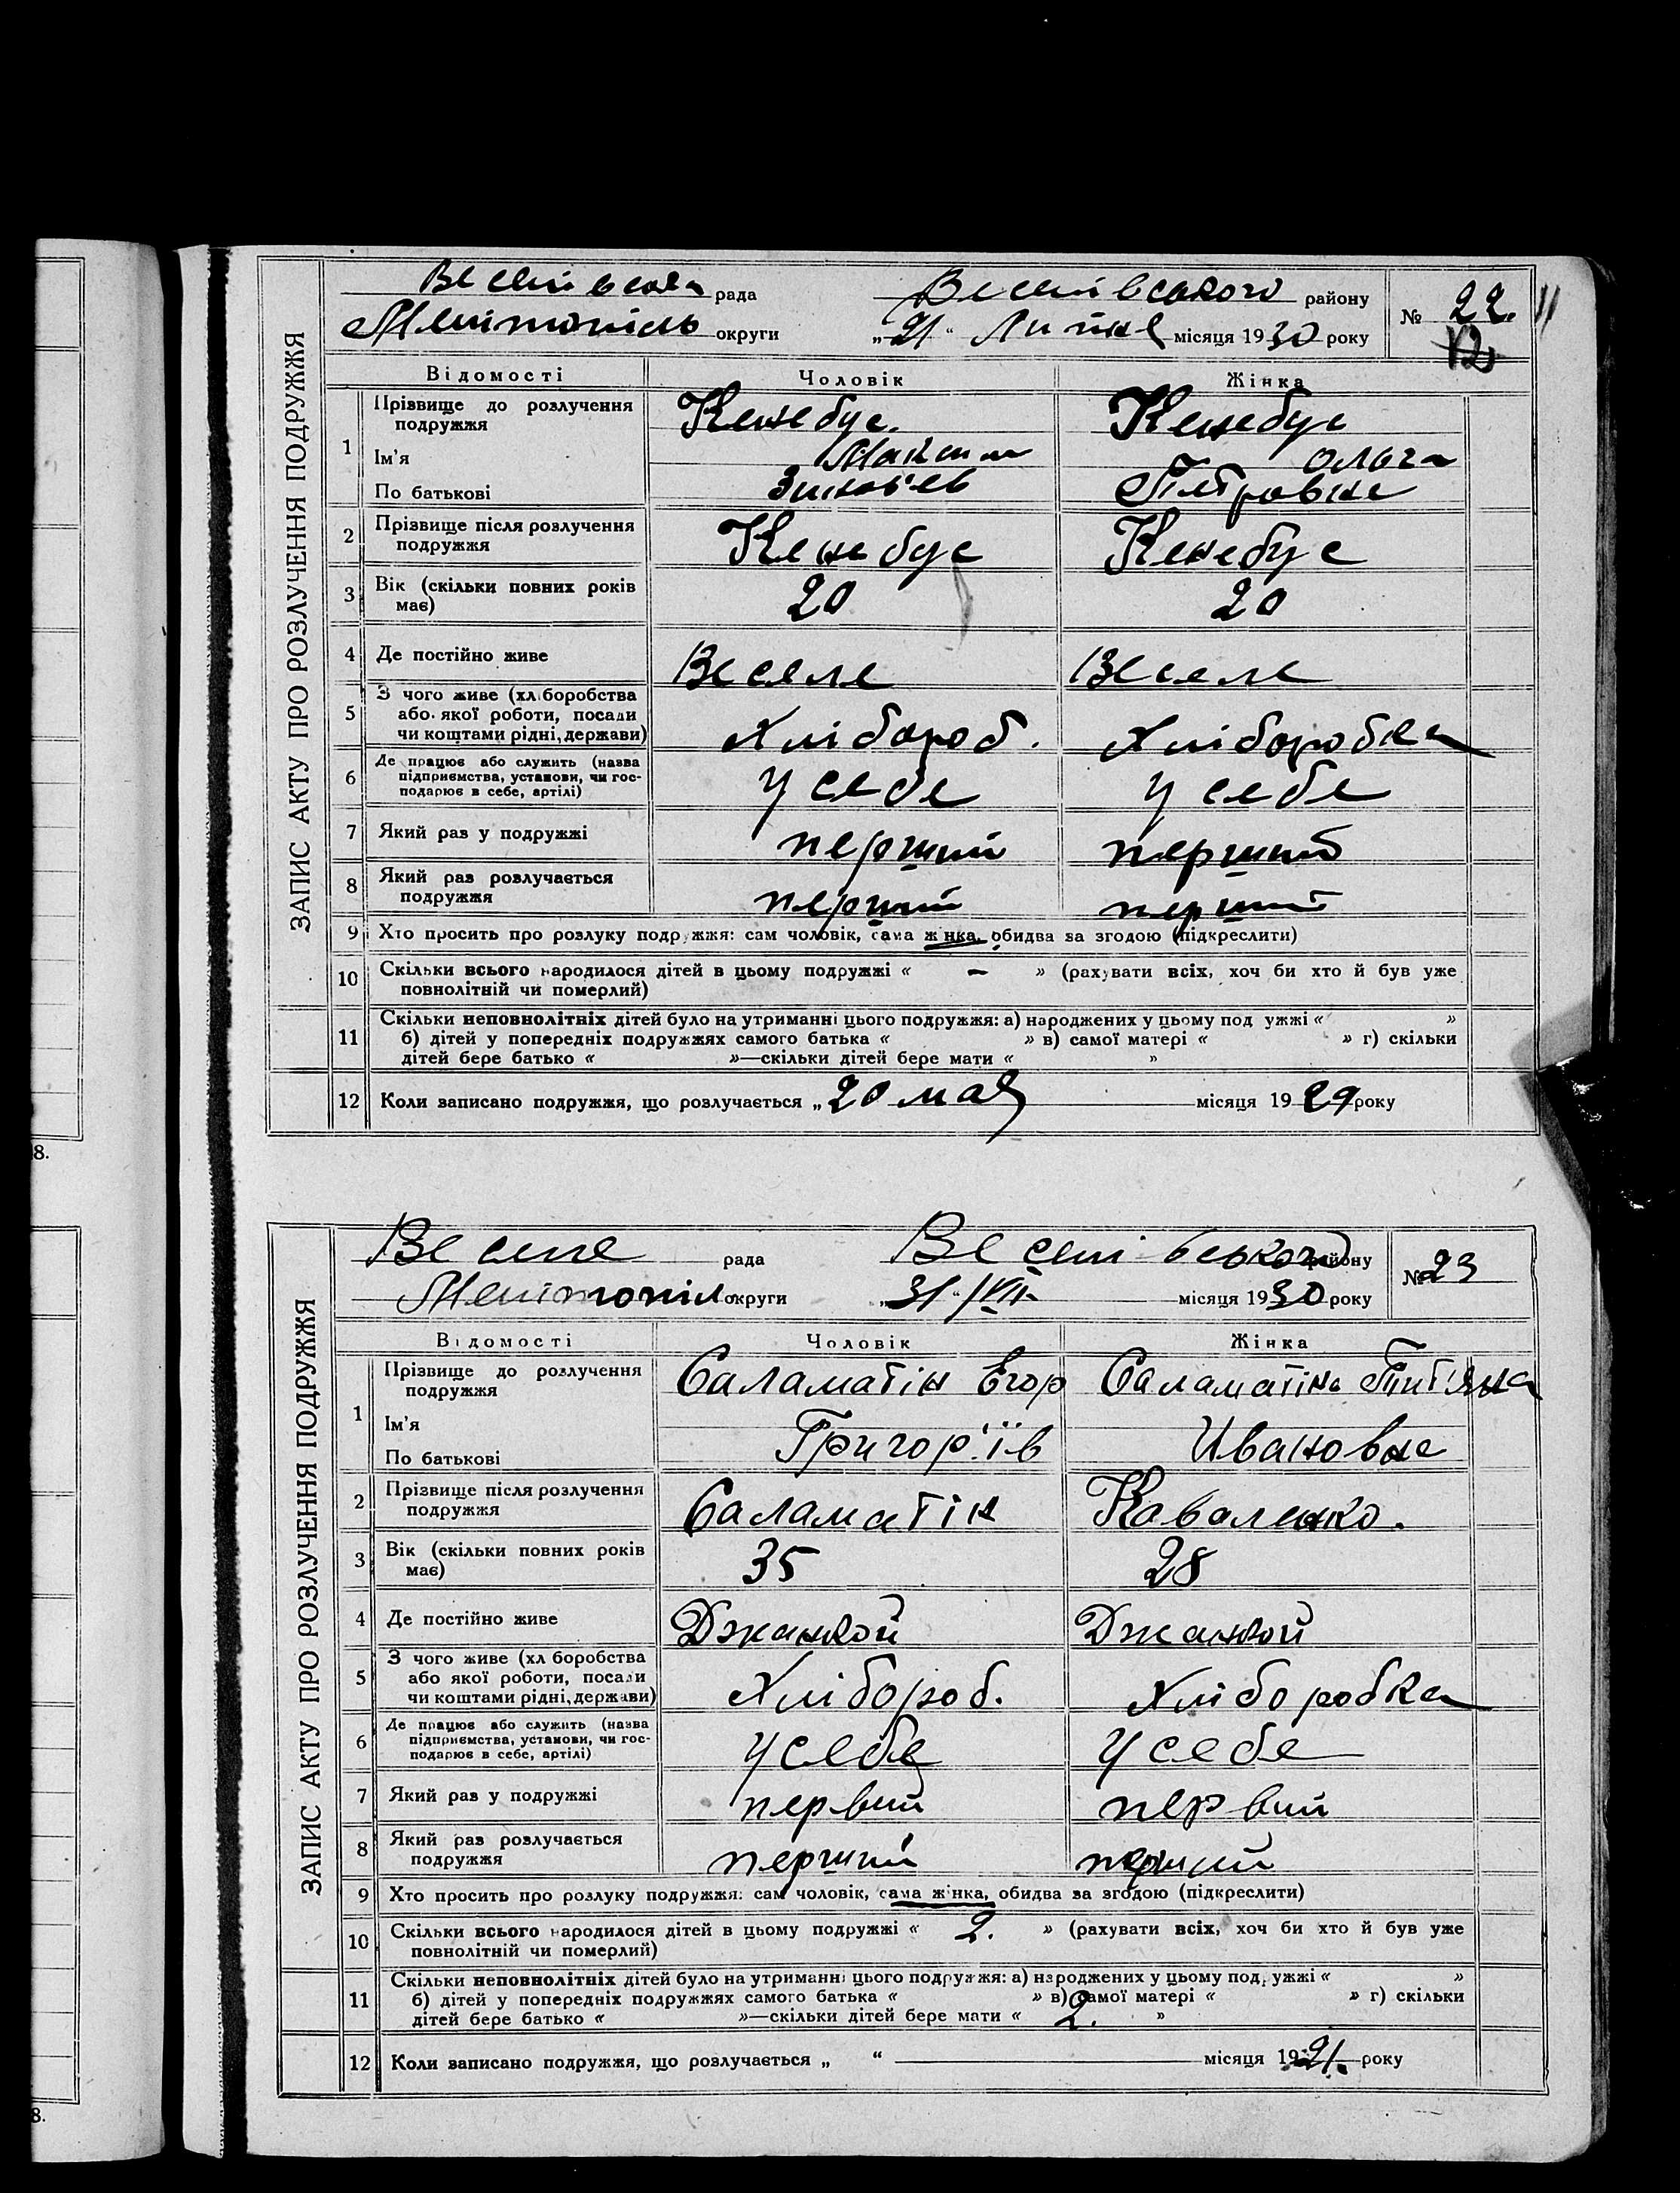 Веселівська рада Веселівського району № 22. 11
Мелітопіль округи „21“ Липня місяця 1930 року 12
ЗАПИС АКТУ ПРО РОЗЛУЧЕННЯ ПОДРУЖЖЯ
Відомості Чоловік Жінка
1 Прізвище до розлучення подружжя Кенебус. Кенебус
Ім'я Максим Ольга
По батькові Зинов'ев Петровна
2 Прізвище після розлучення подружжя Кенебус Кенебус
3 Вік (скільки повних років має) 20 20
4 Де постійно живе Веселе Веселе
5 З чого живе (хліборобства або якої роботи, посади чи коштами рідні, держави) Хлібороб. Хліборобка
6 Де працює або служить (назва підприємства, установи, чи господарює в себе, артілі) У себе У себе
7 Який раз у подружжі перший перший
8 Який раз розлучається подружжя перший перший
9 Хто просить про розлуку подружжя: сам чоловік, сама жінка, обидва за згодою (підкреслити)
10 Скільки всього народилося дітей в цьому подружжі « – » (рахувати всіх, хоч би хто й був уже
повнолітній чи померлий)
11 Скільки неповнолітніх дітей було на утриманні цього подружжя: а) народжених у цьому подружжі « »
б) дітей у попередніх подружжях самого батька « » в) самої матері « » г) скільки
дітей бере батько « »—скільки дітей бере мати « »
12 Коли записано подружжя, що розлучається „20 мая місяця 1929 року
8.
Веселе рада Веселівського району № 23
Мелітопіл округи „31“ /VII- місяця 1930 року
ЗАПИС АКТУ ПРО РОЗЛУЧЕННЯ ПОДРУЖЖЯ
Відомості Чоловік Жінка
1 Прізвище до розлучення подружжя Саламатін Егор Саламатіна Титяна
Ім'я
По батькові Григор'їв Ивановна
2 Прізвище після розлучення подружжя Саламатін Каваленко.
3 Вік (скільки повних років має) 35 28
4 Де постійно живе Джанкой Джанкой
5 З чого живе (хліборобства або якої роботи, посади чи коштами рідні, держави) Хлібороб. Хліборобка
6 Де працює або служить (назва підприємства, установи, чи господарює в себе, артілі) У себе У себе
7 Який раз у подружжі первий первий
8 Який раз розлучається подружжя перший перший
9 Хто просить про розлуку подружжя: сам чоловік, сама жінка, обидва за згодою (підкреслити)
10 Скільки всього народилося дітей в цьому подружжі « 2. » (рахувати всіх, хоч би хто й був уже
повнолітній чи померлий)
11 Скільки неповнолітніх дітей було на утриманні цього подружжя: а) народжених у цьому подружжі « »
б) дітей у попередніх подружжях самого батька « » в) самої матері « » г) скільки
дітей бере батько « »—скільки дітей бере мати « 2. »
12 Коли записано подружжя, що розлучається „ “ місяця 1921. року
8.